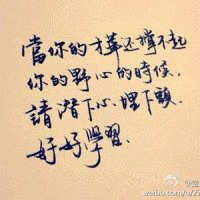 當你的才華还撐不起
你的野心的時候.
請潛下心.埋下頭.
好好學習.
weibo.com/u/2